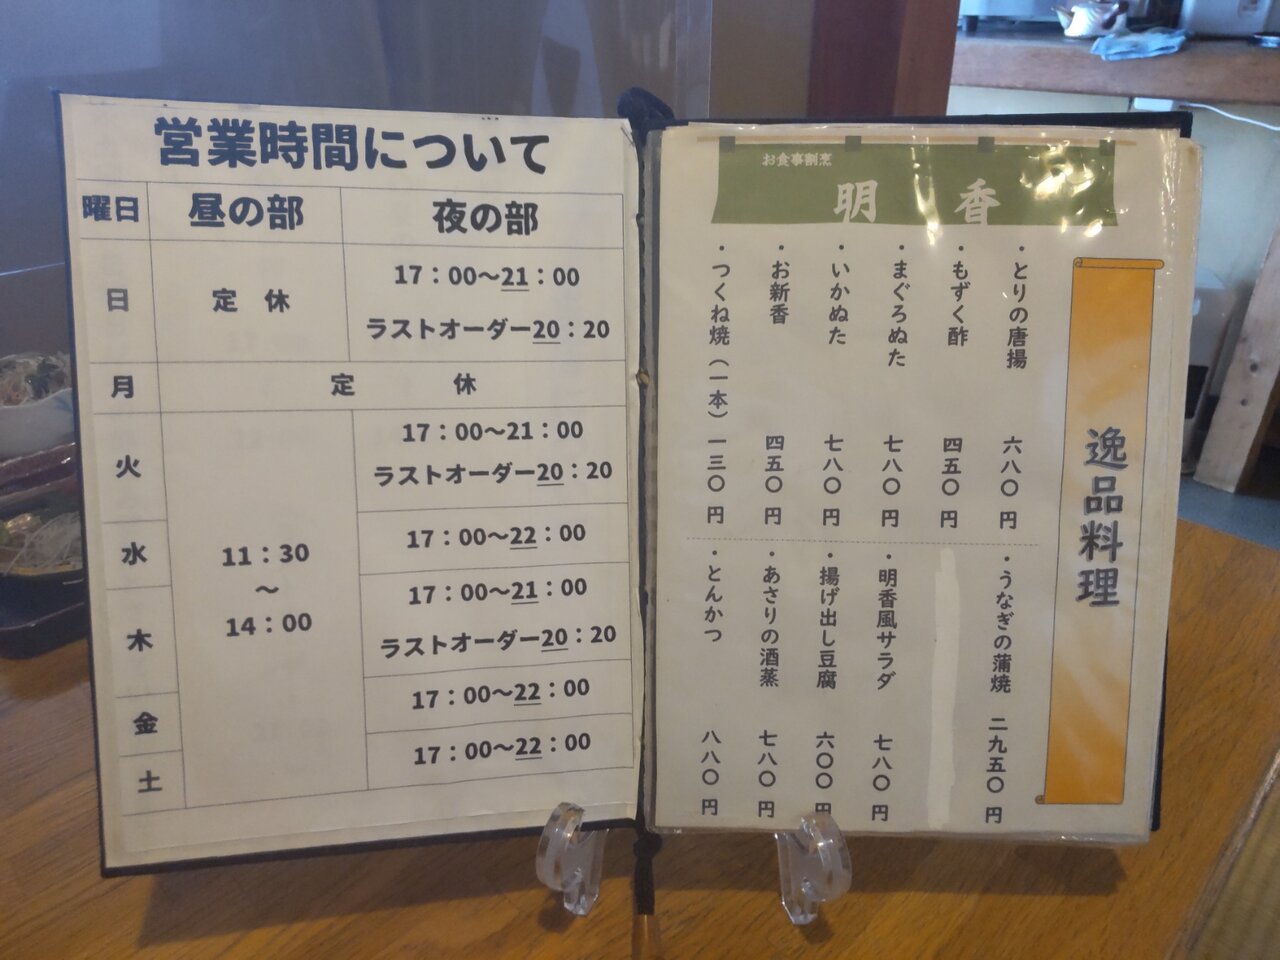 営業時間について
曜日 昼の部 夜の部
日 定 休 17：00～21：00
ラストオーダー20：20
月 定 休
火 17：00～21：00
ラストオーダー20：20
水 17：00～22：00
11：30
～
14：00
木 17：00～21：00
ラストオーダー20：20
金 17：00～22：00
土 17：00～22：00
お食事割烹
明 香
逸品料理
・とりの唐揚 六八〇円
・もずく酢 四五〇円
・まぐろぬた 七八〇円
・いかぬた 七八〇円
・お新香 四五〇円
・つくね焼（一本） 一三〇円
・うなぎの蒲焼 二九五〇円
・明香風サラダ 七八〇円
・揚げ出し豆腐 六〇〇円
・あさりの酒蒸 七八〇円
・とんかつ 八八〇円